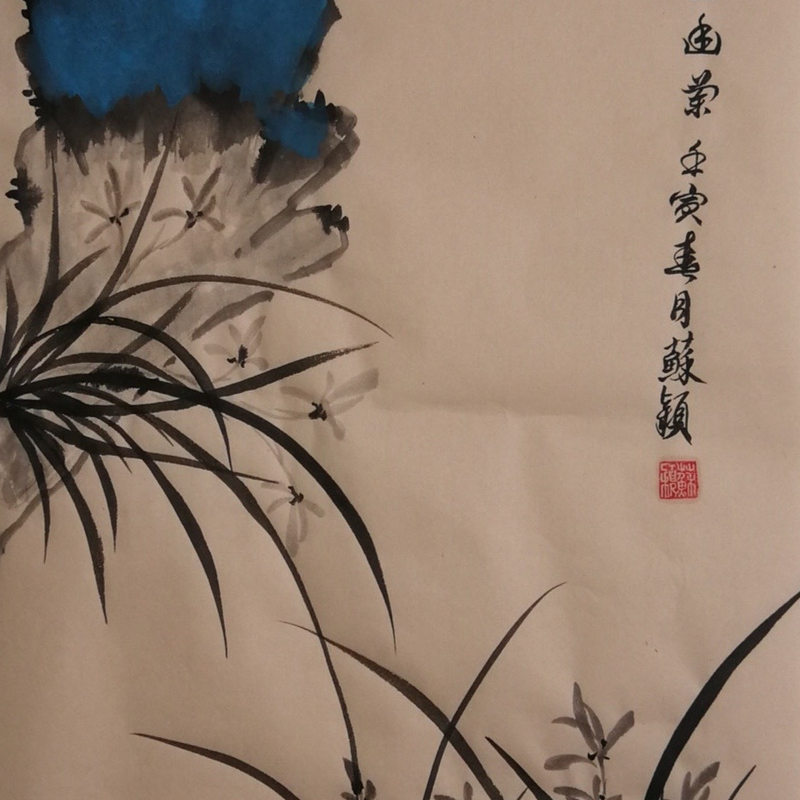 幽蘭 壬寅春月蘇穎